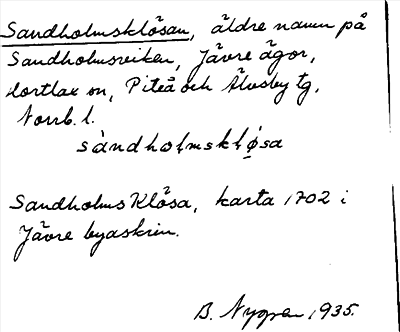 Sandholmsklösan, äldre namn på
Sandholmsviken, Jävre ägor,
Hortlax sn, Piteå och Älvsby tg,
Norrb. l.
sàndholmskløsa
Sandholms Klösa, karta 1702 i
Jävre byaskrin.
B. Nygren 1935.